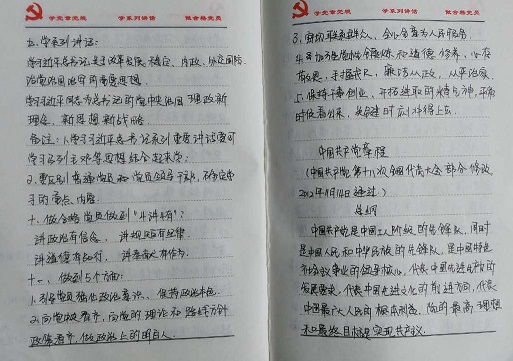 学党章党规 学系列讲话 做合格党员
九.学系列讲话:
学习近平总书记关于改革发展稳定、内政、外交国防
治党治国治军的重要思想
学习近平同志为总书记的党中央治国理政新
理念,新思想新战略
备注:1.学习习近平总书记系列重要讲话要同
学习马列毛邓等思想结合起来学;
2.要区别普通党员和党员领导干部,确定学
习的重点、内容.
十、做合格党员做到"4讲4有":
讲政治有信念、讲规矩有纪律.
讲道德有品行,讲奉献有作为.
十一、做到5个方面:
1.引导党员强化政治意识、保持政治本色.
2.向党中央看齐,向党的理论和路线方针
政策看齐,做政治上的明白人.
学党章党规 学系列讲话 做合格党员
3.密切联系群众、全心全意为人民服务
4.加强党性锻炼和道德修养、心存
敬畏、手握戒尺,廉洁从政,从严治家,
5.保持干事创业、开拓进取的精气神,平常
时候看得出来,关键时刻冲得上去.
中国共产党章程
(中国共产党第十八次全国代表大会部分修改,
2012年11月14日通过.)
总纲
中国共产党是中国工人阶级的先锋队,同时
是中国人民和中华民族的先锋队,是中国特色
社会主义事业的领导核心,代表中国先进生产力的
发展要求,代表中国先进文化的前进方向,代表
中国最广大人民的根本利益。党的最高理想
和最终目标是实现共产主义.